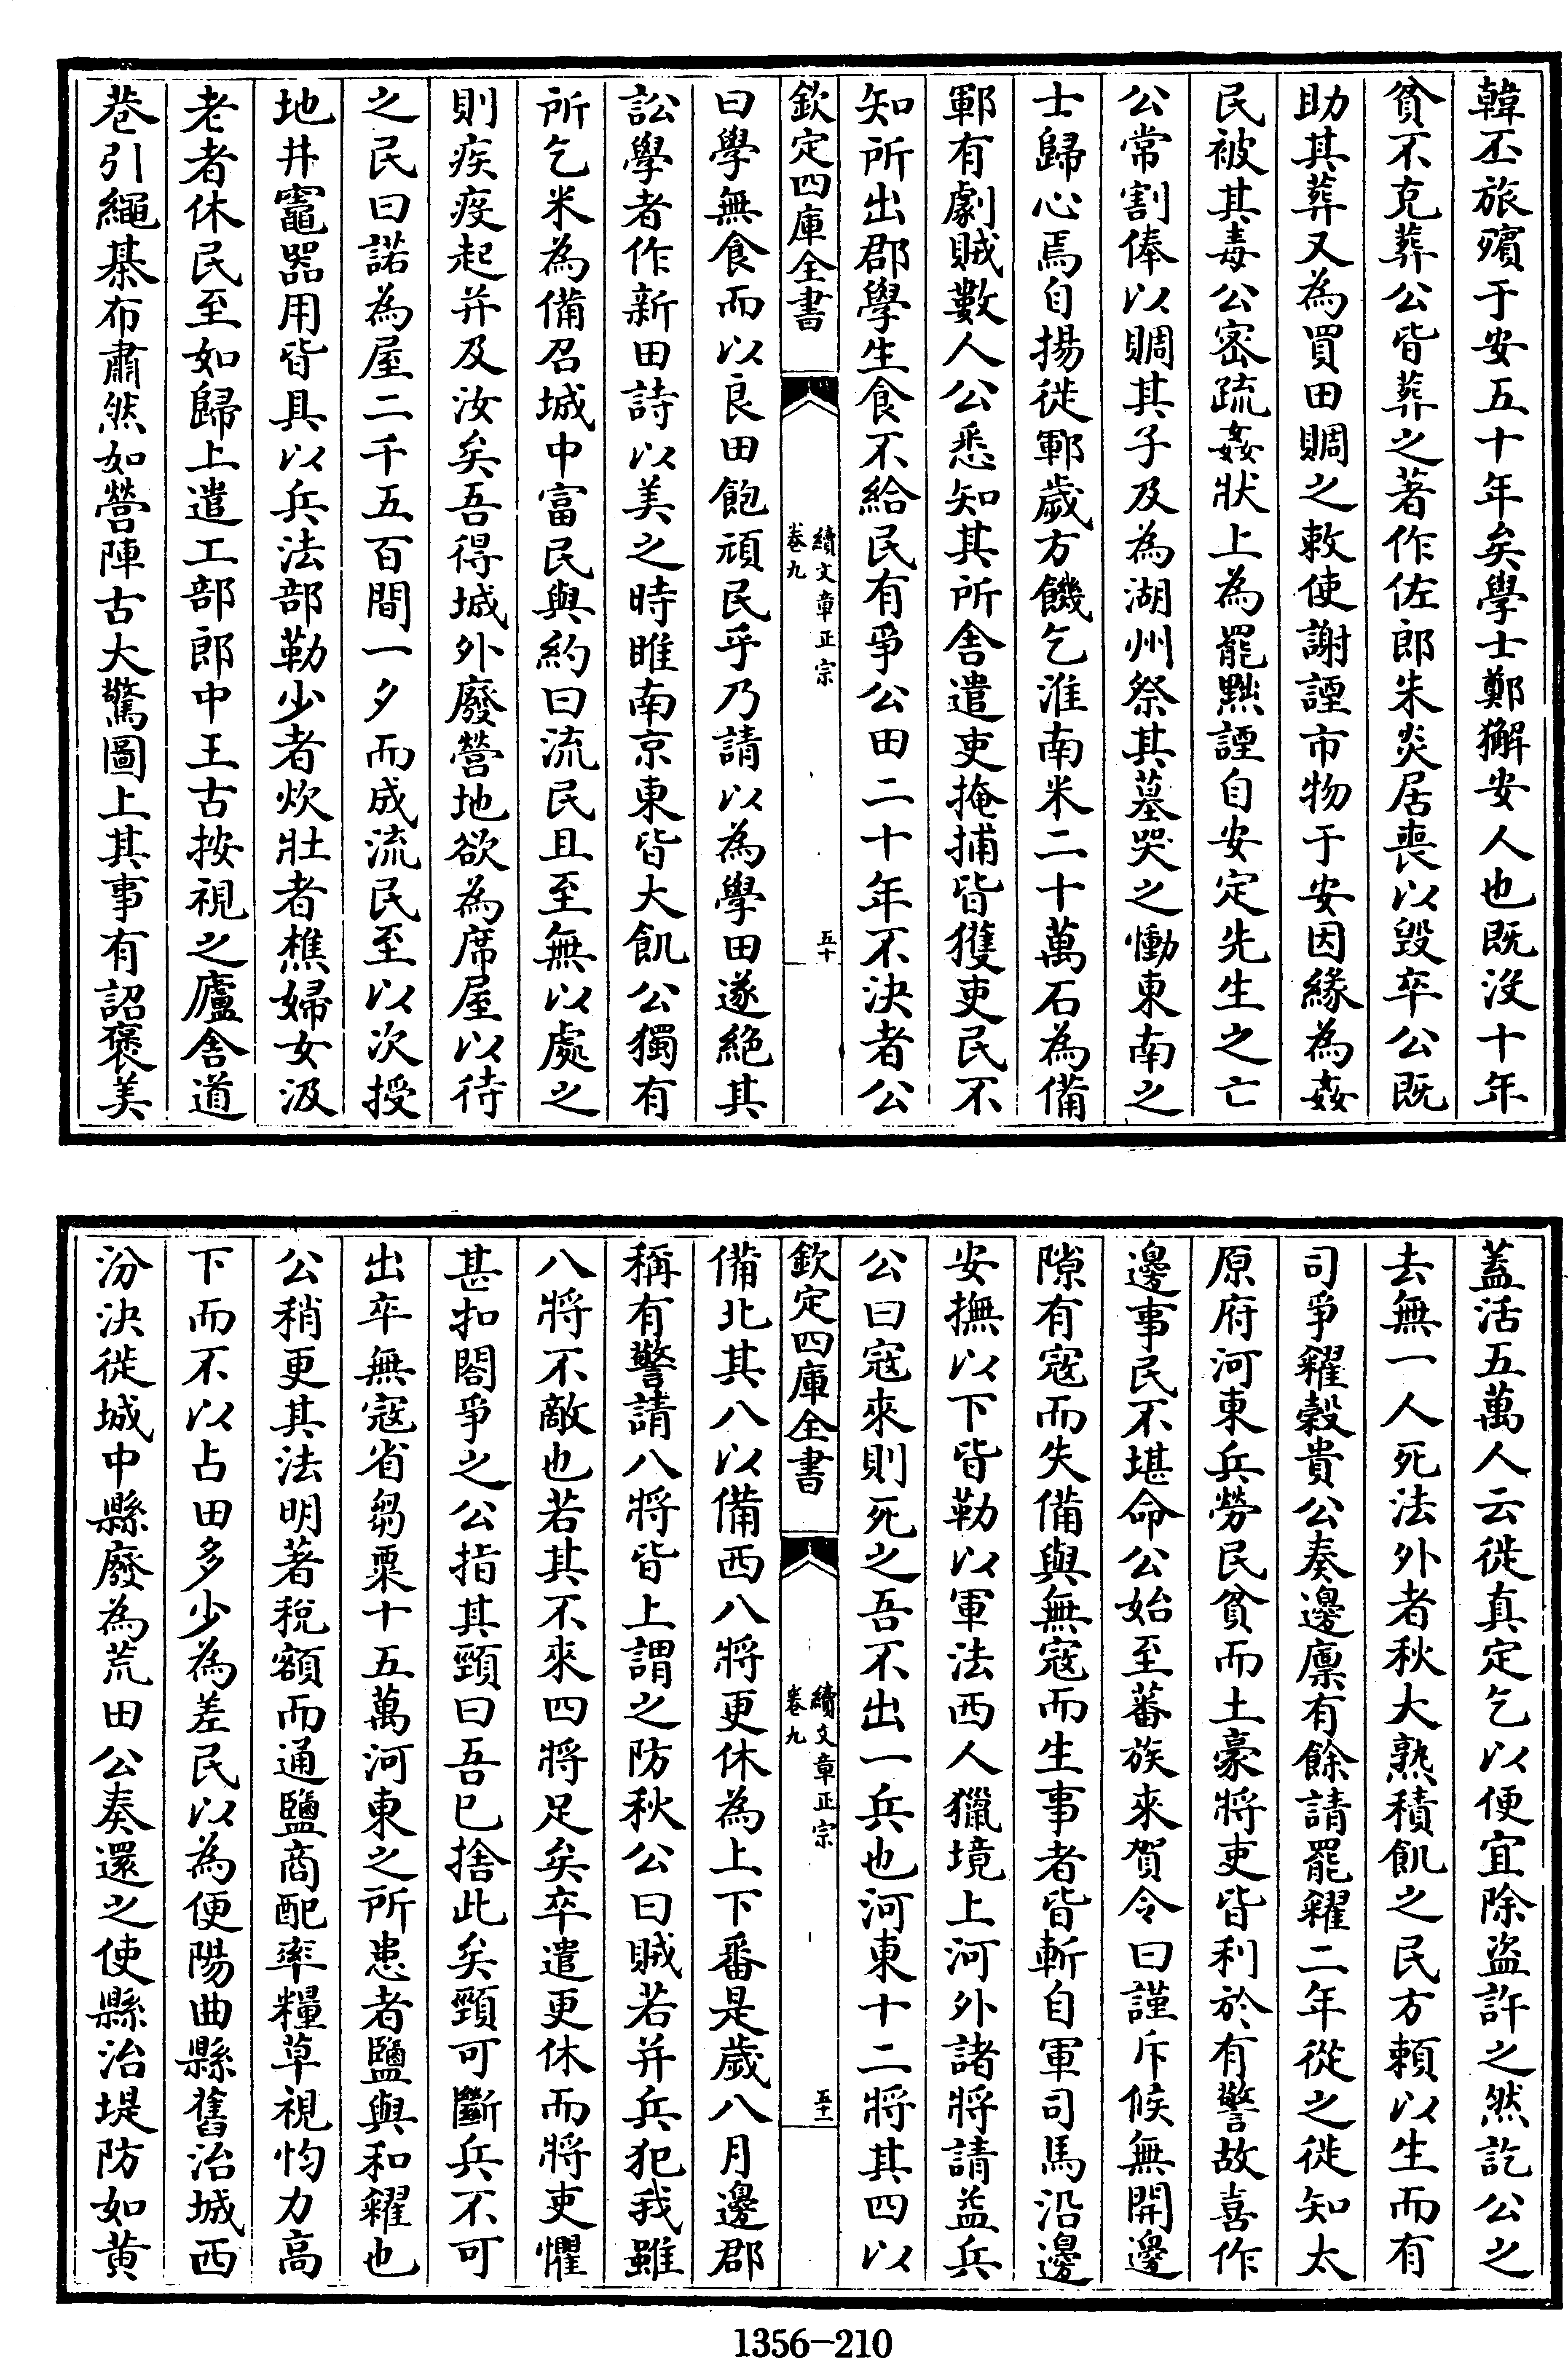 韓丕旅殯于安五十年矣學士鄭獬安人也既没十年
貧不克葬公皆葬之著作佐郎朱炎居喪以毀卒公既
助其葬又為買田賙之敕使謝諲市物于安因緣為姦
民被其毒公密疏姦狀上為罷黜諲自安定先生之亡
公常割俸以賙其子及為湖州祭其墓哭之慟東南之
士歸心焉自揚徙鄆歲方饑乞淮南米二十萬石為備
鄆有劇賊數人公悉知其所舎遣吏掩捕皆獲吏民不
知所出郡學生食不給民有爭公田二十年不決者公
欽定四庫全書
續文章正宗
卷九
五十
曰學無食而以良田飽頑民乎乃請以為學田遂絶其
訟學者作新田詩以美之時睢南京東皆大飢公獨有
所乞米為備召城中富民與約曰流民且至無以處之
則疾疫起并及汝矣吾得城外廢營地欲為席屋以待
之民曰諾為屋二千五百間一夕而成流民至以次授
地井竈器用皆具以兵法部勒少者炊壯者樵婦女汲
老者休民至如歸上遣工部郎中王古按視之廬舎道
巷引繩棊布肅然如營陣古大驚圖上其事有詔褒美
蓋活五萬人云徙真定乞以便宜除盜許之然訖公之
去無一人死法外者秋大熟積飢之民方頼以生而有
司爭糴穀貴公奏邊廪有餘請罷糴二年從之徙知太
原府河東兵勞民貧而土豪將吏皆利於有警故喜作
邊事民不堪命公始至蕃族來賀令曰謹斥候無開邊
隙有宼而失備與無宼而生事者皆斬自軍司馬沿邊
安撫以下皆勒以軍法西人獵境上河外諸將請益兵
公曰宼來則死之吾不出一兵也河東十二將其四以
欽定四庫全書
續文章正宗
卷九
五十一
備北其八以備西八將更休為上下番是歲八月邊郡
稱有警請八將皆上謂之防秋公曰賊若并兵犯我雖
八將不敵也若其不來四將足矣卒遣更休而將吏懼
甚扣閤爭之公指其頸曰吾已捨此矣頸可斷兵不可
出卒無宼省芻粟十五萬河東之所患者鹽與和糴也
公稍更其法明著稅額而通鹽商配率糧草視均力高
下而不以占田多少為差民以為便陽曲縣舊治城西
汾決徙城中縣廢為荒田公奏還之使縣治堤防如黄
1356-210